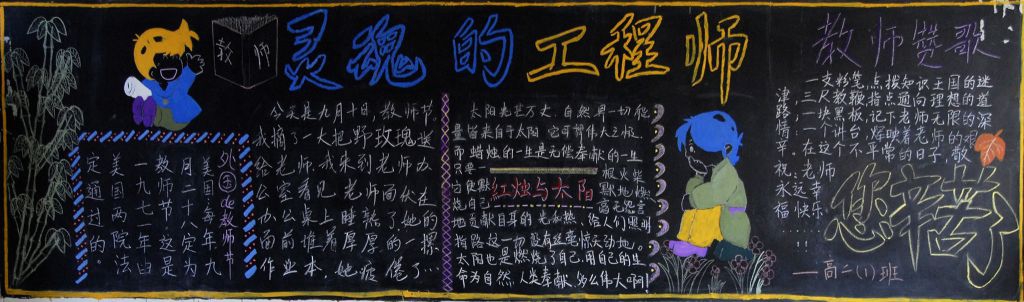 教师
灵魂的工程师
教师赞歌
外国de教师节
美国:每年九
月二十八定为
教师节。这是
一九七一年由
美国两院法
定通过的。
今天是九月十日,教师节,
我摘了一大把野玫瑰送
给老师,我来到老师办
公室看见,老师伏在
办公桌上睡熟了,她的
面前堆着厚厚的一摞
作业本,她疲倦了…
太阳光芒万丈,自然界一切能
量皆来自于太阳,它可谓伟大之极。
而蜡烛的一生是无偿奉献的一生
只要一根火柴
它便默默地燃
烧自己,毫无怨言
红烛与太阳
地贡献自身的光和热,给人们照明
指路这一切没有丝毫惊天动地。
太阳也是燃烧了自己,用自己的生
命为自然,人类奉献,多么伟大啊!
一支粉笔,点拨知识王国的迷津
三尺教鞭,指点通向理想的道路
一块黑板,记下老师无限的深情
一个讲台,辉映着老师的艰辛
在这个不平常的日子,敬
祝:老师
永远幸
福快乐……!!
您辛苦了
——高二(1)班